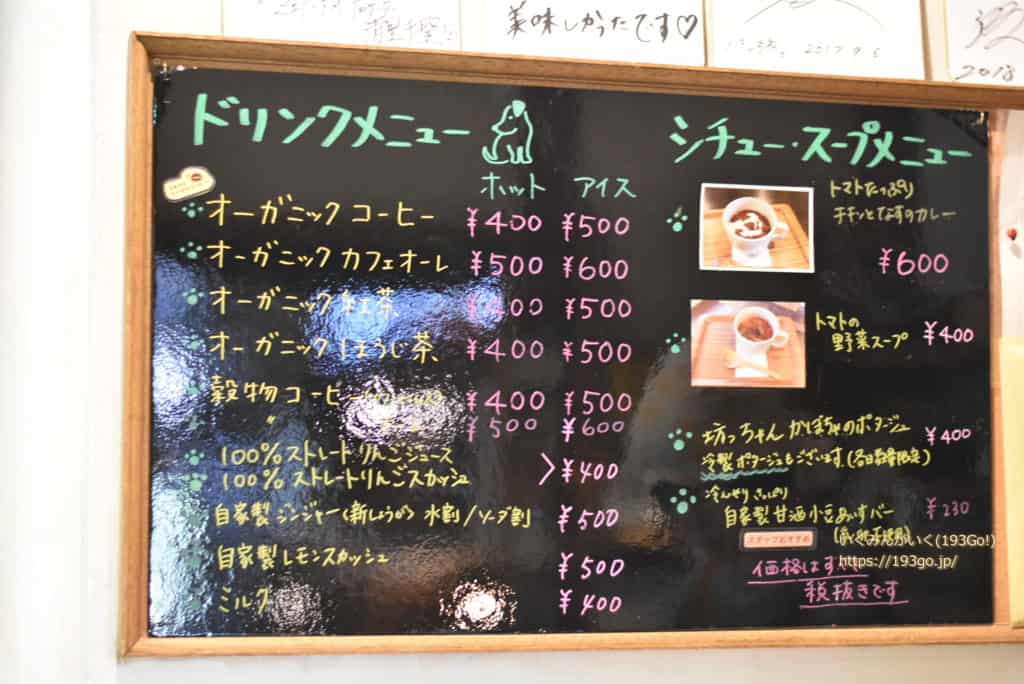 美味しかったです♡
2017 9 5
2018
ドリンクメニュー
ホット アイス
オーガニック コーヒー ¥400 ¥500
オーガニック カフェオーレ ¥500 ¥600
オーガニック 紅茶 ¥400 ¥500
オーガニック ほうじ茶 ¥400 ¥500
穀物コーヒー ¥400 ¥500
〃 ¥500 ¥600
100%ストレートりんごジュース
100%ストレートりんごスカッシュ
¥400
自家製ジンジャー(新しょうが) 水割/ソーダ割 ¥500
自家製レモンスカッシュ ¥500
ミルク ¥400
シチュー・スープメニュー
トマトたっぷり
チキンとなすのカレー
¥600
トマトの
野菜スープ ¥400
坊っちゃんかぼちゃのポタージュ ¥400
冷製ポタージュもございます。(各日数量限定)
冷んやりさっぱり
自家製甘酒小豆あいすバー ¥230
スタッフおすすめ
みちがいく(193Go!)
https://193go.jp/
価格はすべて
税抜きです